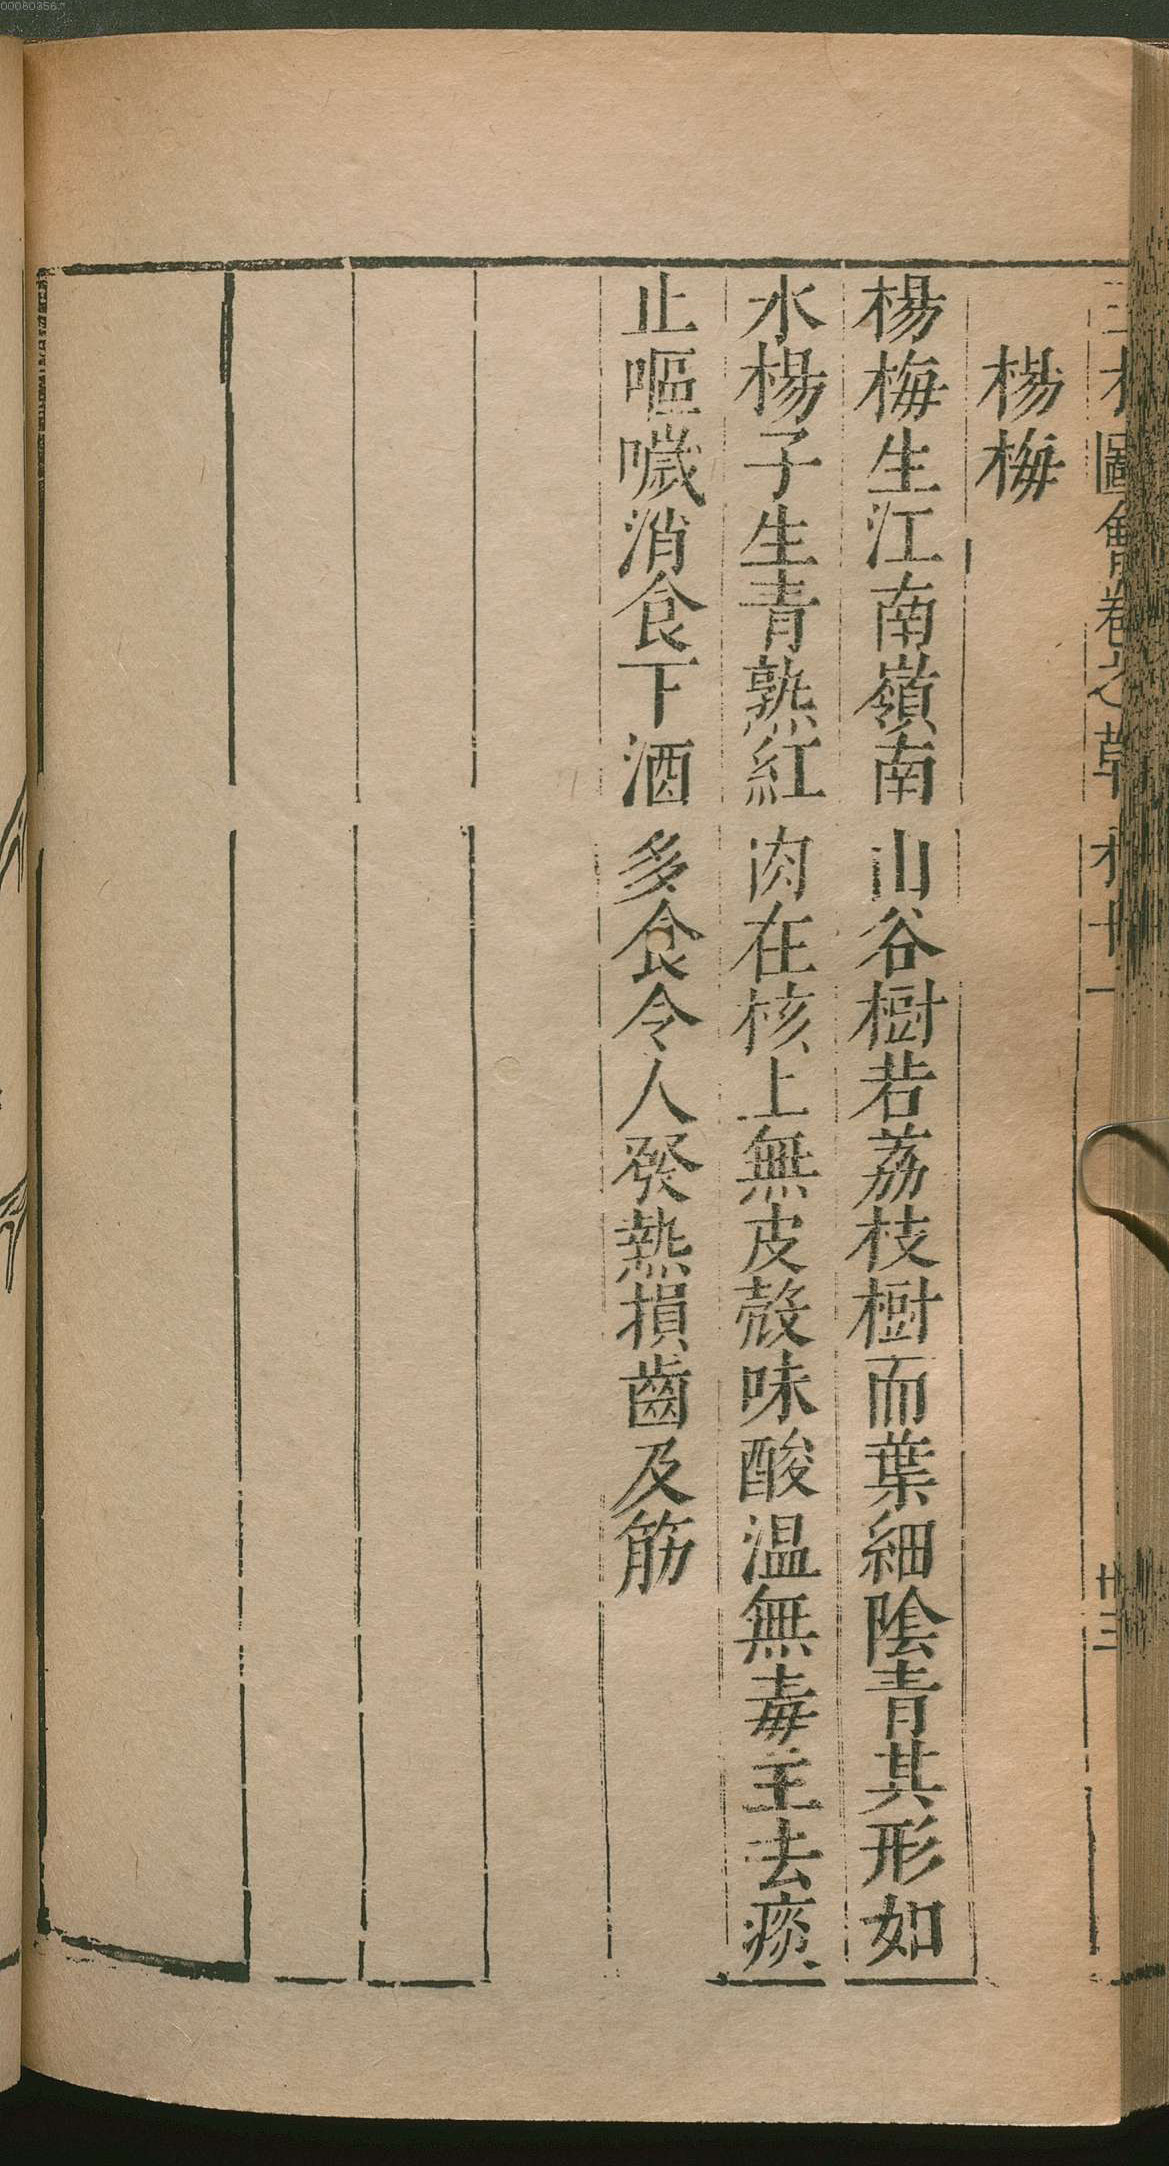 00080356
圖會卷之草木十一
廿三
楊梅
楊梅生江南嶺南山谷樹若荔枝樹而葉細陰青其形如
水楊子生青熟紅肉在核上無皮殼味酸温無毒主去痰
止嘔噦消食下酒多食令人發熱損齒及筋